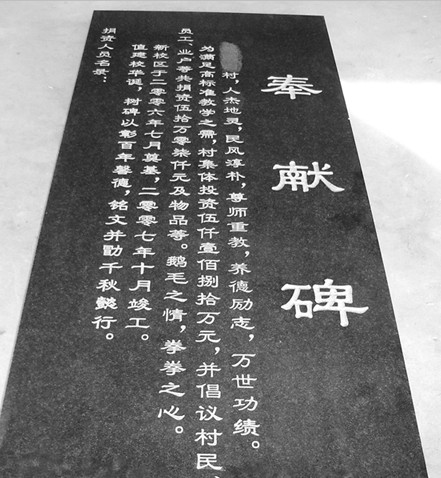 奉献碑
村，人杰地灵，民风淳朴，尊师重教，养德励志，万世功绩。
为满足高标准教学之需，村集体投资伍仟壹佰捌拾万元，并倡议村民、
员工、业户等共捐资伍拾万零柒仟元及物品等。鹅毛之情，拳拳之心。
新校区于二零零六年七月奠基，二零零七年十月竣工。
值建校华诞，树碑以彰百年馨德，铭文并勖千秋懿行。
捐资人员名录：